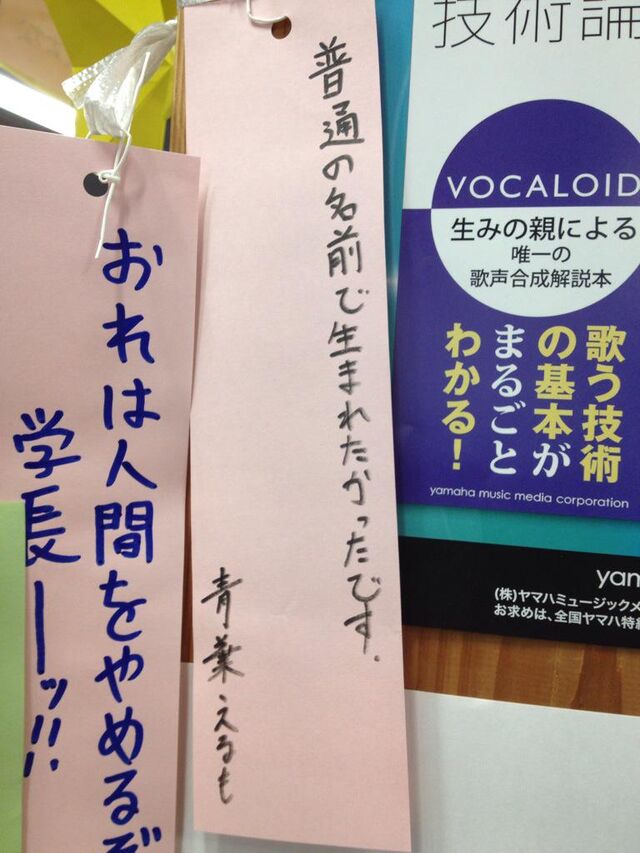 おれは人間をやめるぞ
学長ーッ!!
普通の名前で生まれたかったです.
青葉える も
技術論
VOCALOID
生みの親による
唯一の
歌声合成解説本
歌う技術
の基本が
まるごと
わかる!
yamaha music media corporation
yam
(株)ヤマハミュージックメ
お求めは、全国ヤマハ特